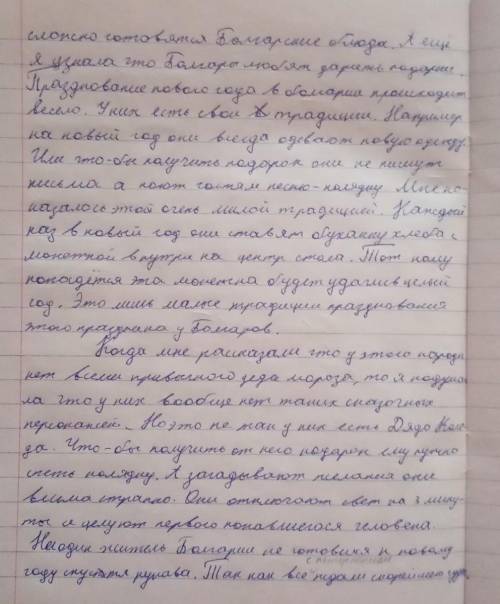 сложно готовятся Болгарские блюда. А ещё
я узнала что Болгары любят дарить подарки.
Празднование нового года в болгарии происходит
весело. У них есть свои традиции. Например
на новый год они всегда одевают новую одежду.
Или что-бы получить подарок они не пишут
письма а поют гостям песню-колядку. Мне по-
казалось этой очень милой традицией. Каждый
раз в новый год они ставят буханку хлеба с
монеткой внутри на центр стола. Тот кому
попадётся эта монетка будет удачив целый
год. Это лишь малые традиции празднования
этого праздника у Болгаров.
Когда мне рассказали что у этого народа
нет всеми привычного деда мороза, то я подума-
ла что у них вообще нет таких сказочных
персонажей. Но это не так у них есть Дядо Коле-
да. Что-бы получить от него подарок ему нужно
спеть колядку. А загадывают желания они
весьма странно. Они отключают свет на 3 мину-
ты и целуют первого попавшегося человека.
Неодин житель Болгарии не готовился к новому
году спустя рукава. Так как все ждали скорейшего
с нетерпением